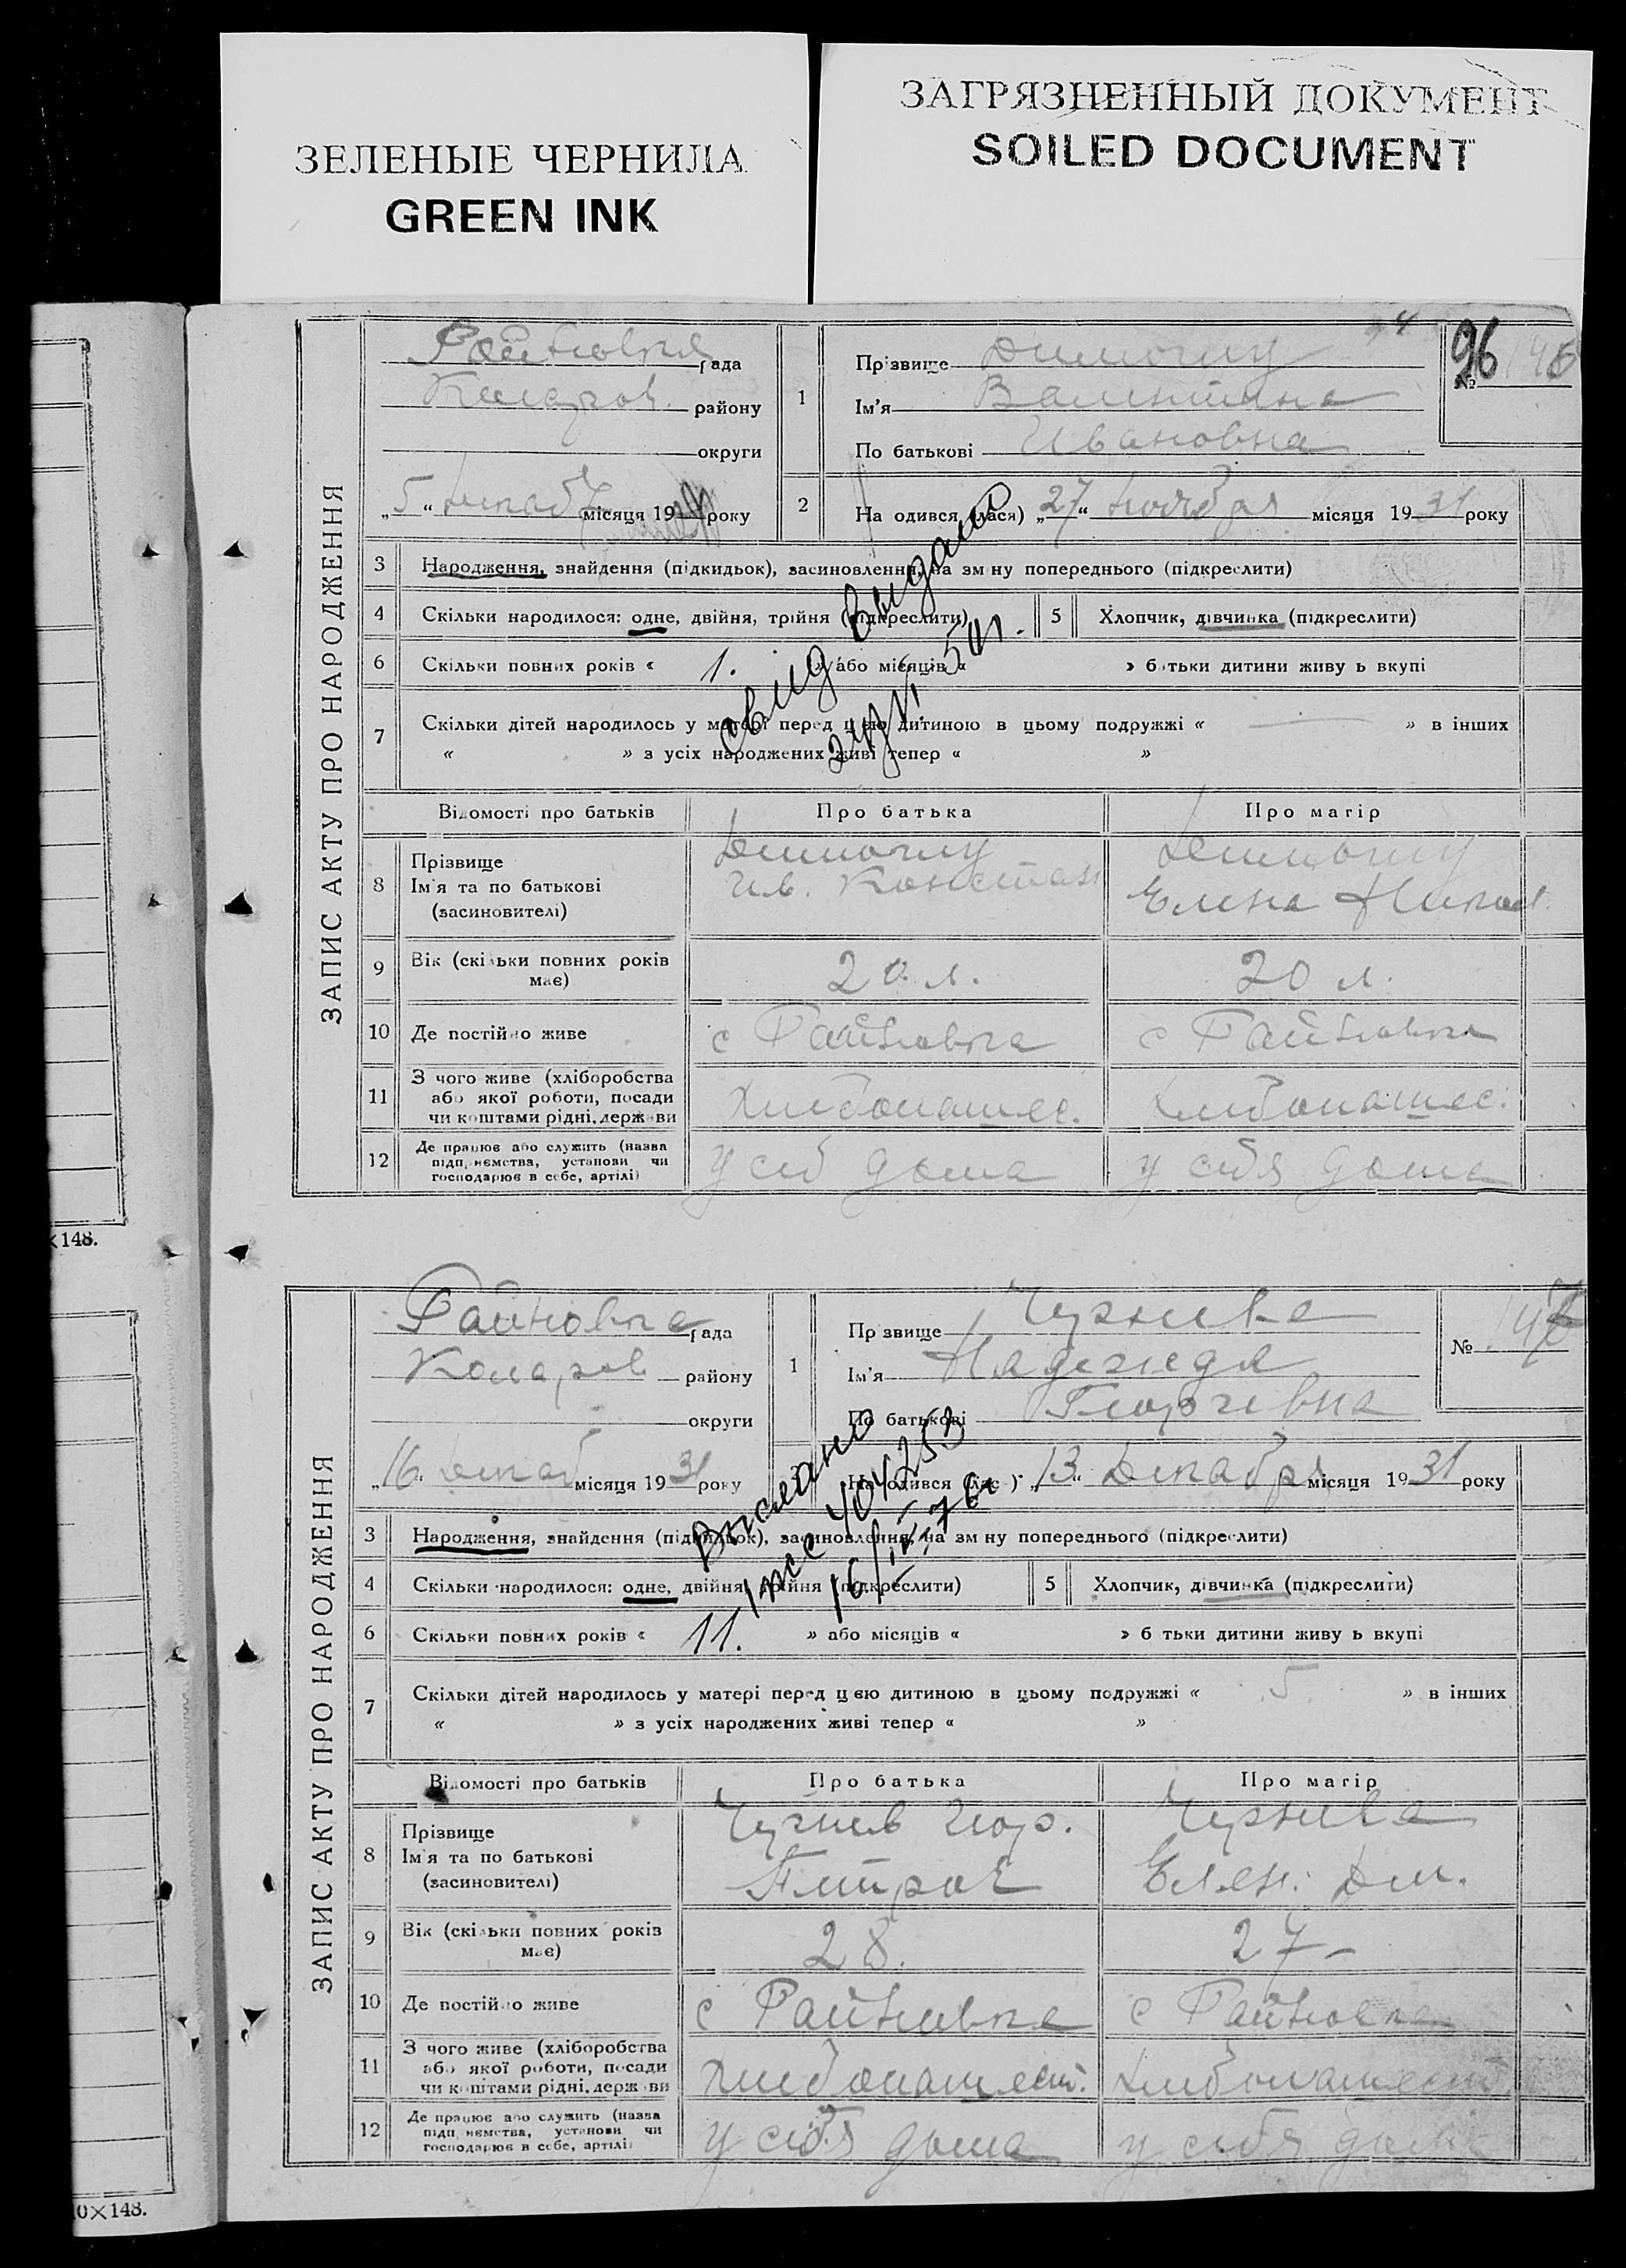 ЗЕЛЕНЫЕ ЧЕРНИЛА
GREEN INK
ЗАГРЯЗНЕННЫЙ ДОКУМЕНТ
SOILED DOCUMENT
ЗАПИС АКТУ ПРО НАРОДЖЕННЯ
Райновка рада
Коларов. району
округи
„5“ декаб місяця 19 року
1
Прізвище
Ім'я Валентина
По батькові Ивановна
96
№ 146
2 На одився (лася) „27“ ноября місяця 1931 року
3 Народження, знайдення (підкидьок), засиновлення, на зм ну попереднього (підкреслити)
4 Скільки народилося: одне, двійня, трійня (підкреслити) 5 Хлопчик, дівчинка (підкреслити)
6 Скільки повних років « 1. » або місяців « » батьки дитини живу ь вкупі
7 Скільки дітей народилось у матері перед цією дитиною в цьому подружжі « — » в інших
« » з усіх народжених живі тепер « »
свид выдано
Відомості про батьків Про батька Про матір
8 Прізвище
Ім'я та по батькові Ив. Констан Елена Никол.
(засиновителі)
9 Вік (скільки повних років 20 л. 20 л.
має)
10 Де постійно живе с Райновка с Райновка
11 З чого живе (хліборобства
або якої роботи, посади Хлебопашес. Хлебопашес.
чи коштами рідні, держави
12 Де працює або служить (назва
підприємства, установи чи у себ дома у себя дома
господарює в себе, артілі)
×148.
ЗАПИС АКТУ ПРО НАРОДЖЕННЯ
Райновка рада
Коларов району
округи
„16“ декаб місяця 1931 року
1
Пр звище
Ім'я Надежда
По батькові Георгиевна
№ 147
На одився (лас ) „13“ Декабря місяця 1931 року
3 Народження, знайдення (підкидьок), засиновлення, на зм ну попереднього (підкреслити)
4 Скільки народилося: одне, двійня, трійня (підкреслити) 5 Хлопчик, дівчинка (підкреслити)
6 Скільки повних років « 11. » або місяців « » б тьки дитини живу ь вкупі
7 Скільки дітей народилось у матері перед цією дитиною в цьому подружжі « 5 » в інших
« » з усіх народжених живі тепер « »
Выслано
404253
Відомості про батьків Про батька Про матір
8 Прізвище Геор.
Ім'я та по батькові Петров Елен. Дм.
(засиновителі)
9 Вік (скільки повних років 28. 27 –
має)
10 Де постійно живе с Райновка с Райновка
11 З чого живе (хліборобства
або якої роботи, посади Хлебопашест. Хлебопашест
чи коштами рідні, держави
12 Де працює або служить (назва
підприємства, установи чи у себя дома у себя дома
господарює в себе, артілі)
0×148.